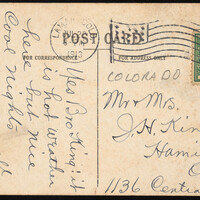 POST CARD
FOR CORRESPONDENCE
FOR ADDRESS ONLY
1913
COLORADO
Yes Bro King! it
is hot weather
here but nice
Cool nights
Mr & Mrs.
J. H. Kin
Hami
1136 Central